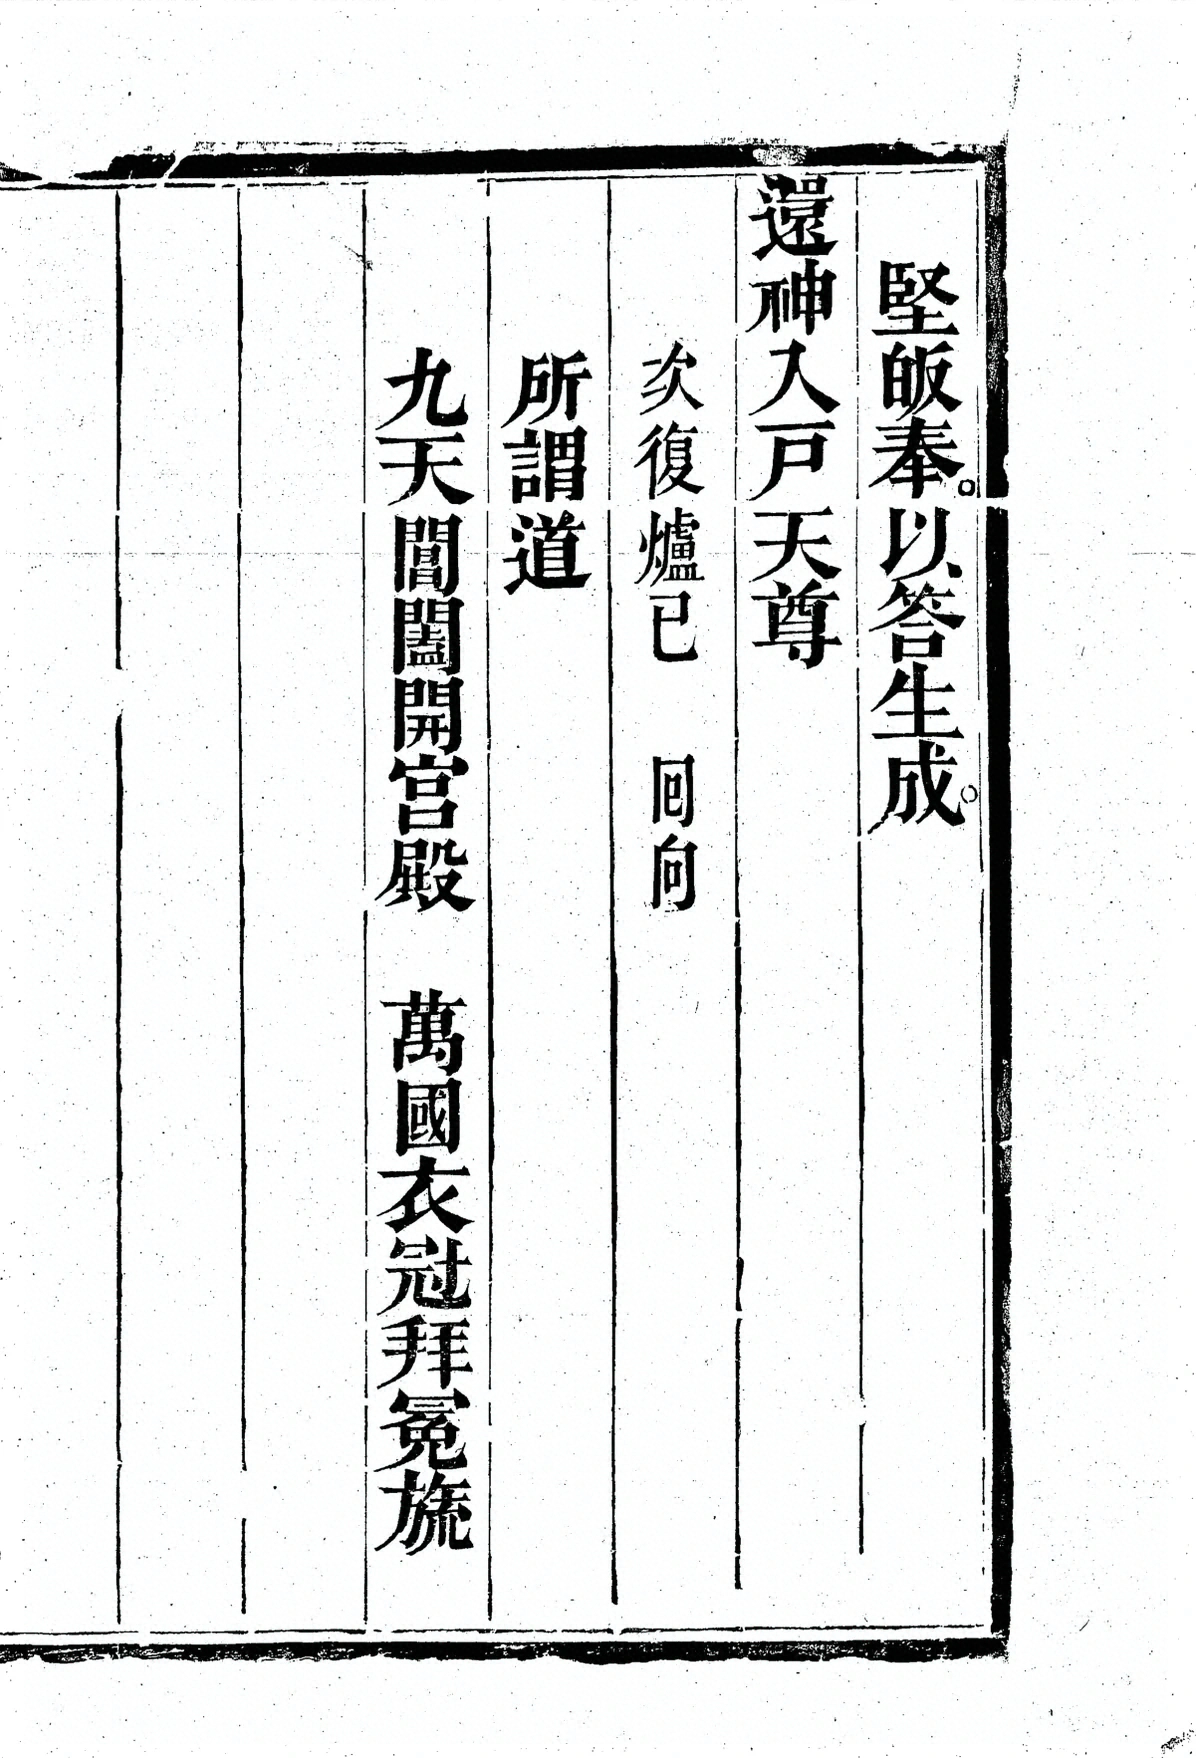 堅皈奉。以答生成。
還神入戸天尊
次復爐已　回向
所謂道
九天閶闔開宮殿　萬國衣冠拜冕旒